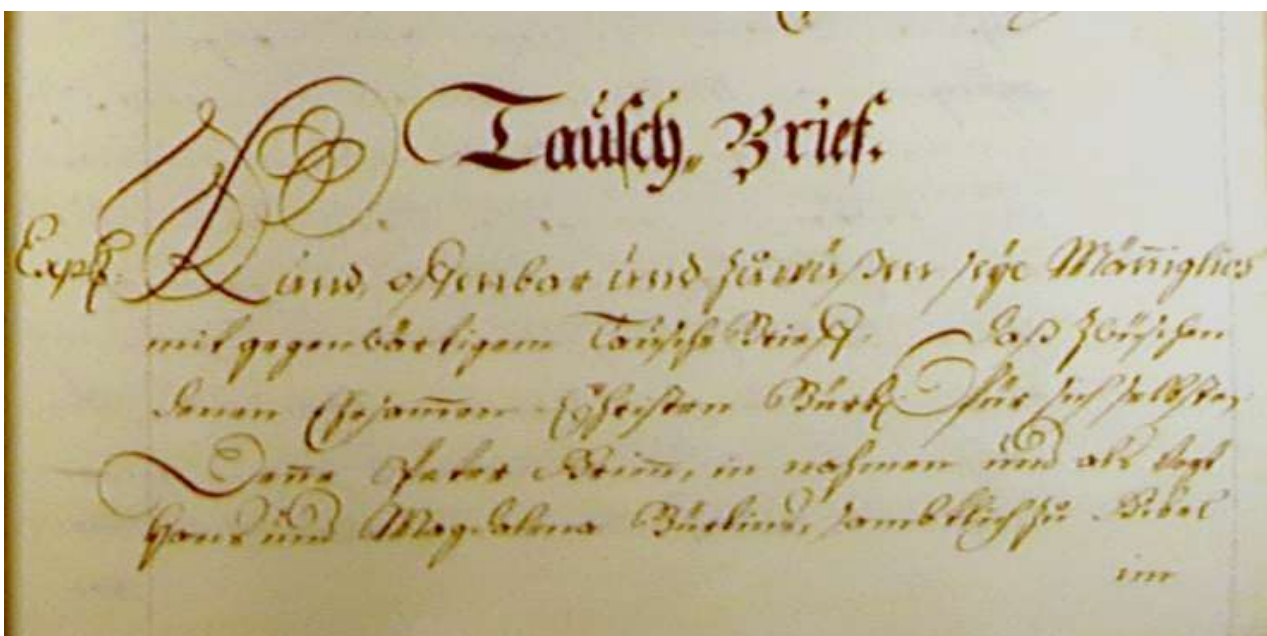 Tausch„ Brief.
Kund, offenbar und zuwüßen seÿe Mäniglich
mit gegenbärtigem Tausch Brieff. Daß zwüschen
denen Ehrsamen Christen Bürki für sich selbsten
Denne Peter in nahmen und als Vogt
Hans und Magdalena Bürkins, sambtlich zu
im